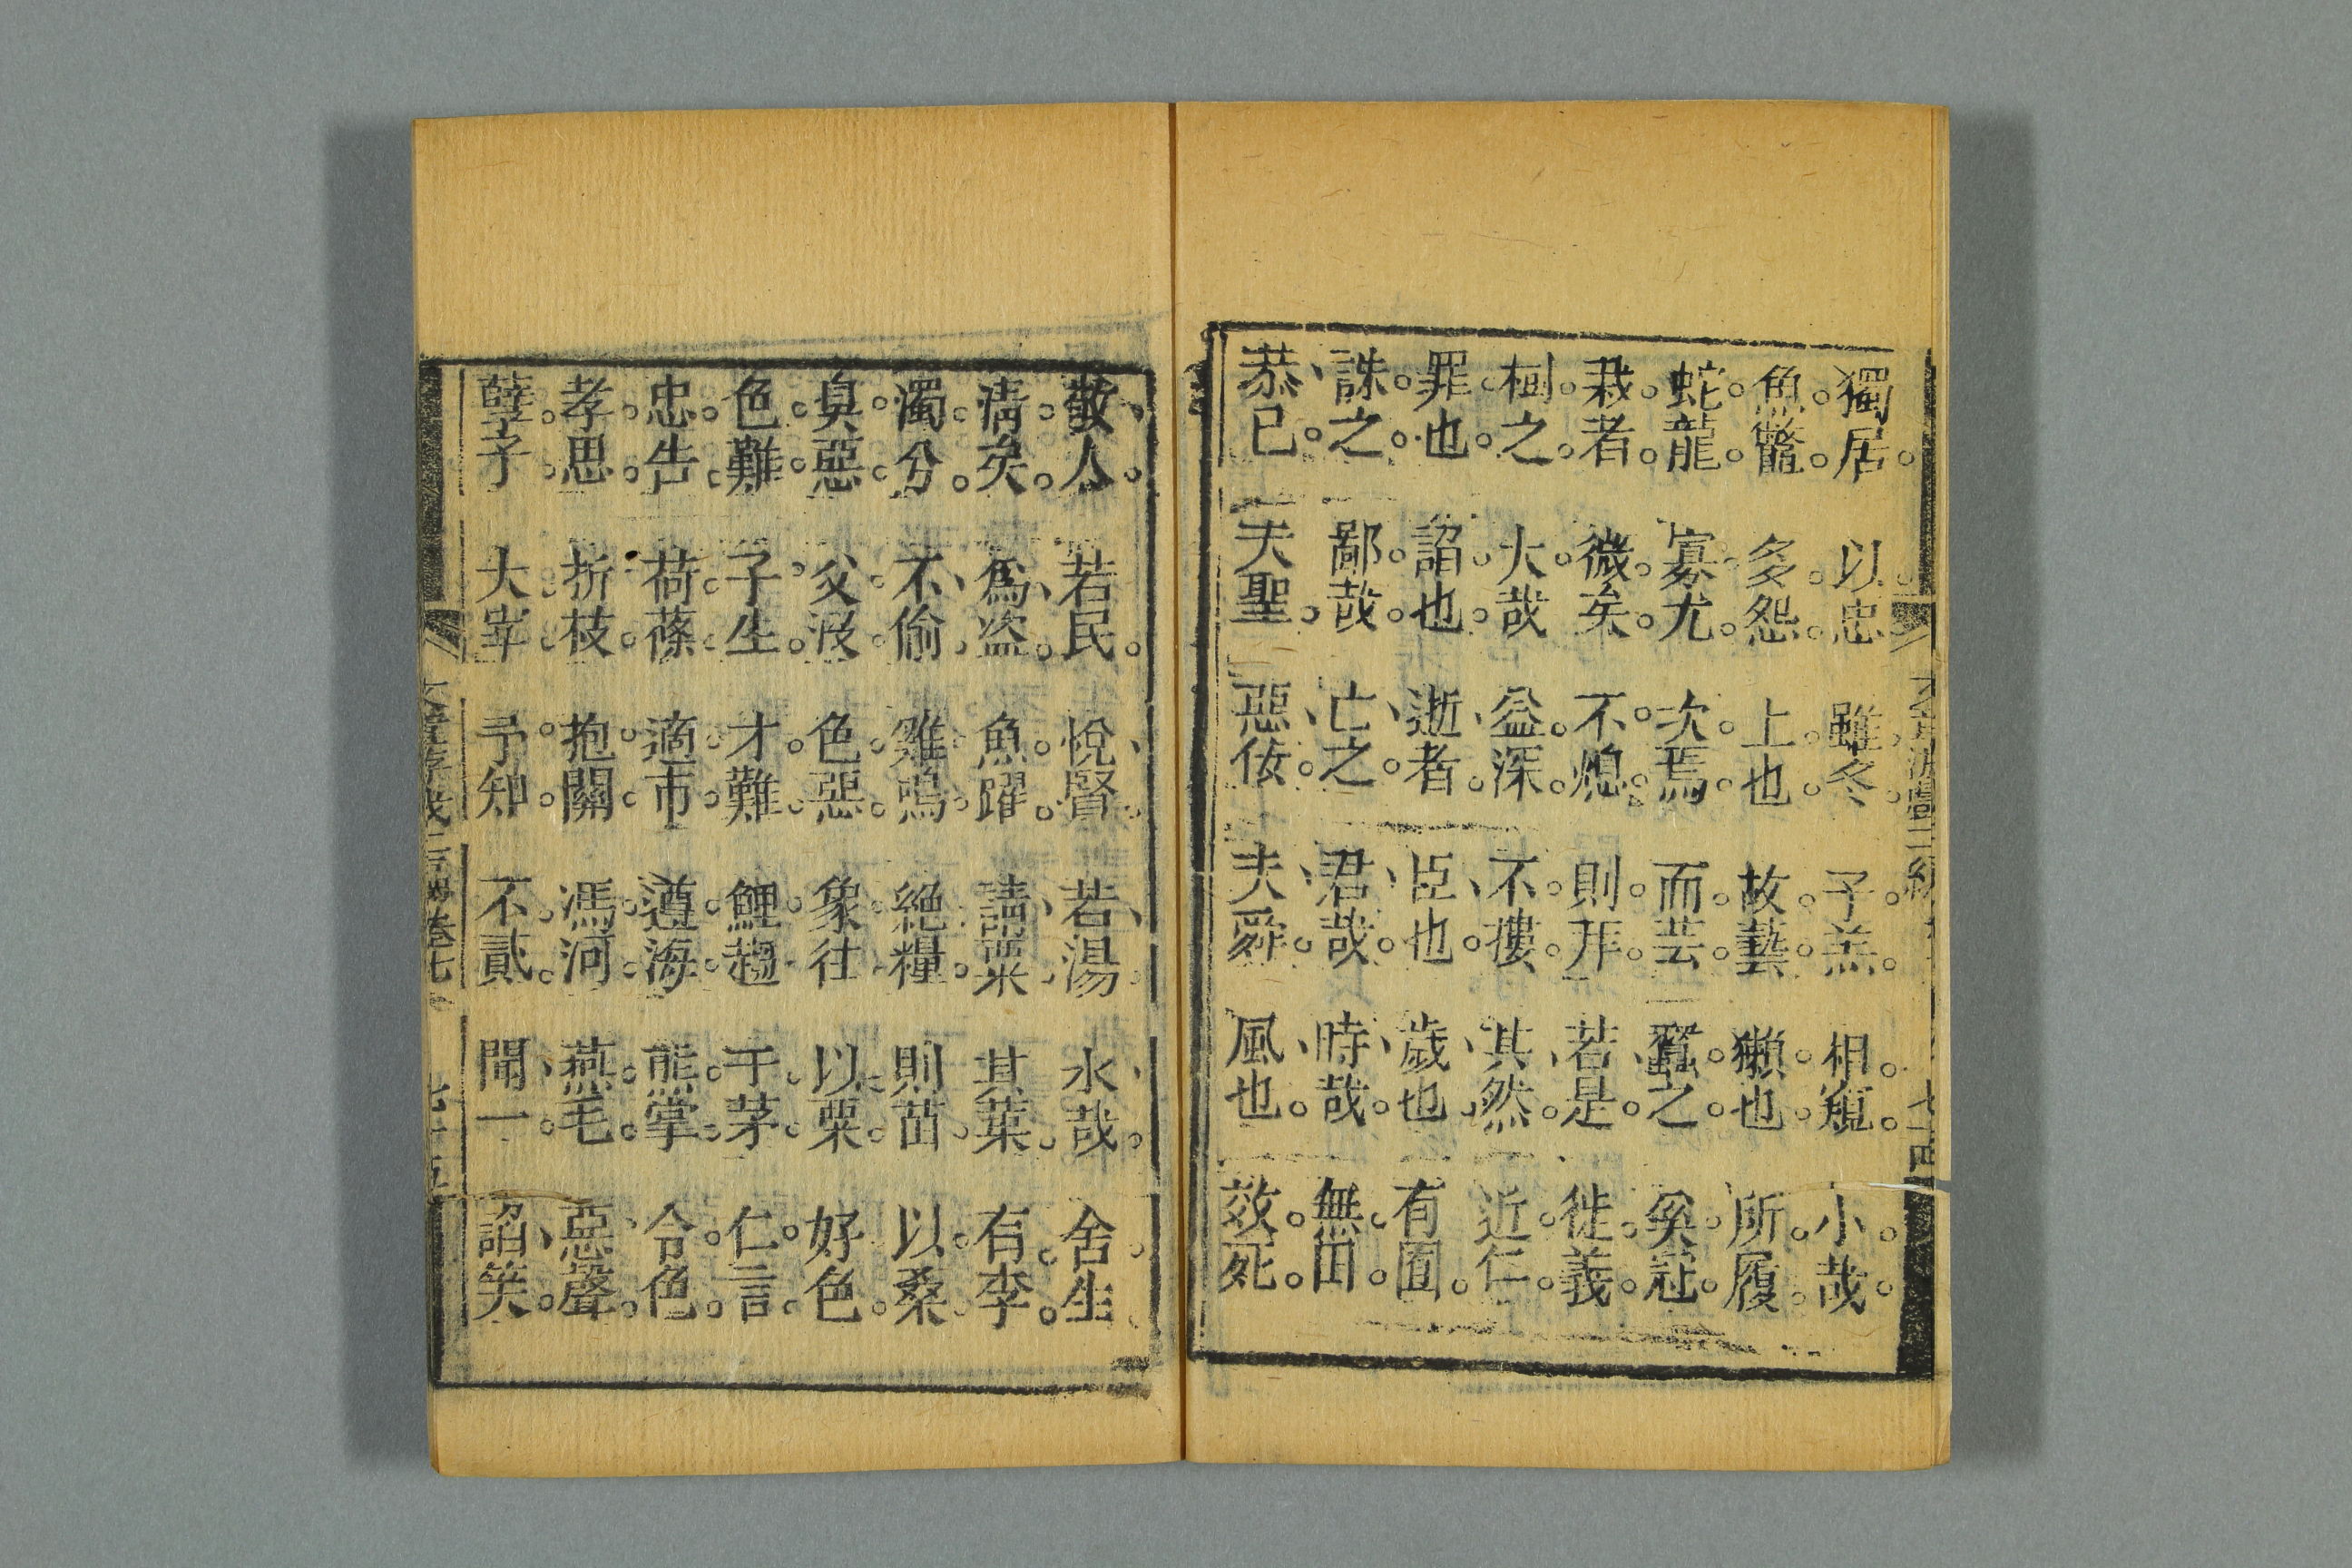 獨居。以忠。雖冬。子羔。相窺。小哉。
魚鼈。多怨。上也。故藝。獺也。所履。
蛇龍。寡尤。次焉。而芸。蠶之。奚冠。
栽者。微矣。不熄。則拜。若是。徙義。
樹之。大哉。益深。不摟。其然。近仁。
罪也。諂也。逝者。臣也。歲也。有囿。
誅之。鄙哉。亡之。君哉。時哉。無田。
恭己。夫聖。惡佞。夫舜。風也。效死。
七十四
敬人。若民。悅賢。若湯。水哉。舍生。
清矣。爲盜。魚躍。請粟。其葉。有李。
濁分。不偷。雞鳴。絕糧。則苗。以桑。
臭惡。父沒。色惡。象往。以粟。好色。
色難。子生。才難。鯉趨。于茅。仁言。
忠告。荷蓧。適市。遵海。熊掌。令色。
孝思。折枝。抱關。馮河。燕毛。惡聲。
孽子。大宰。予知。不貳。聞一。諂笑。
卷七
七十五